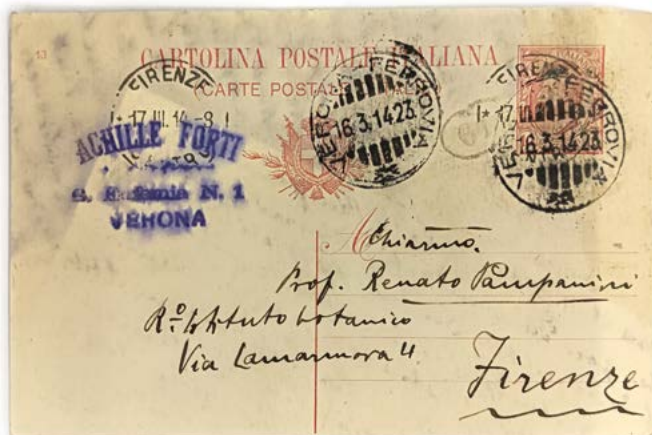 13
CARTOLINA POSTALE ITALIANA
(CARTE POSTALE
FIRENZE
1* 17 III 14 - 8
VERONA FERROVIA
16.3.14 23
FIRENZE
1* 17
VERONA FERROVIA
16.3.14 23
ACHILLE FORTI
S. Eufemia N. 1
VERONA
A Chiarmo.
Prof. Renato Pampanini
Ro. Istituto botanico
Via Lamarmora 4
Firenze